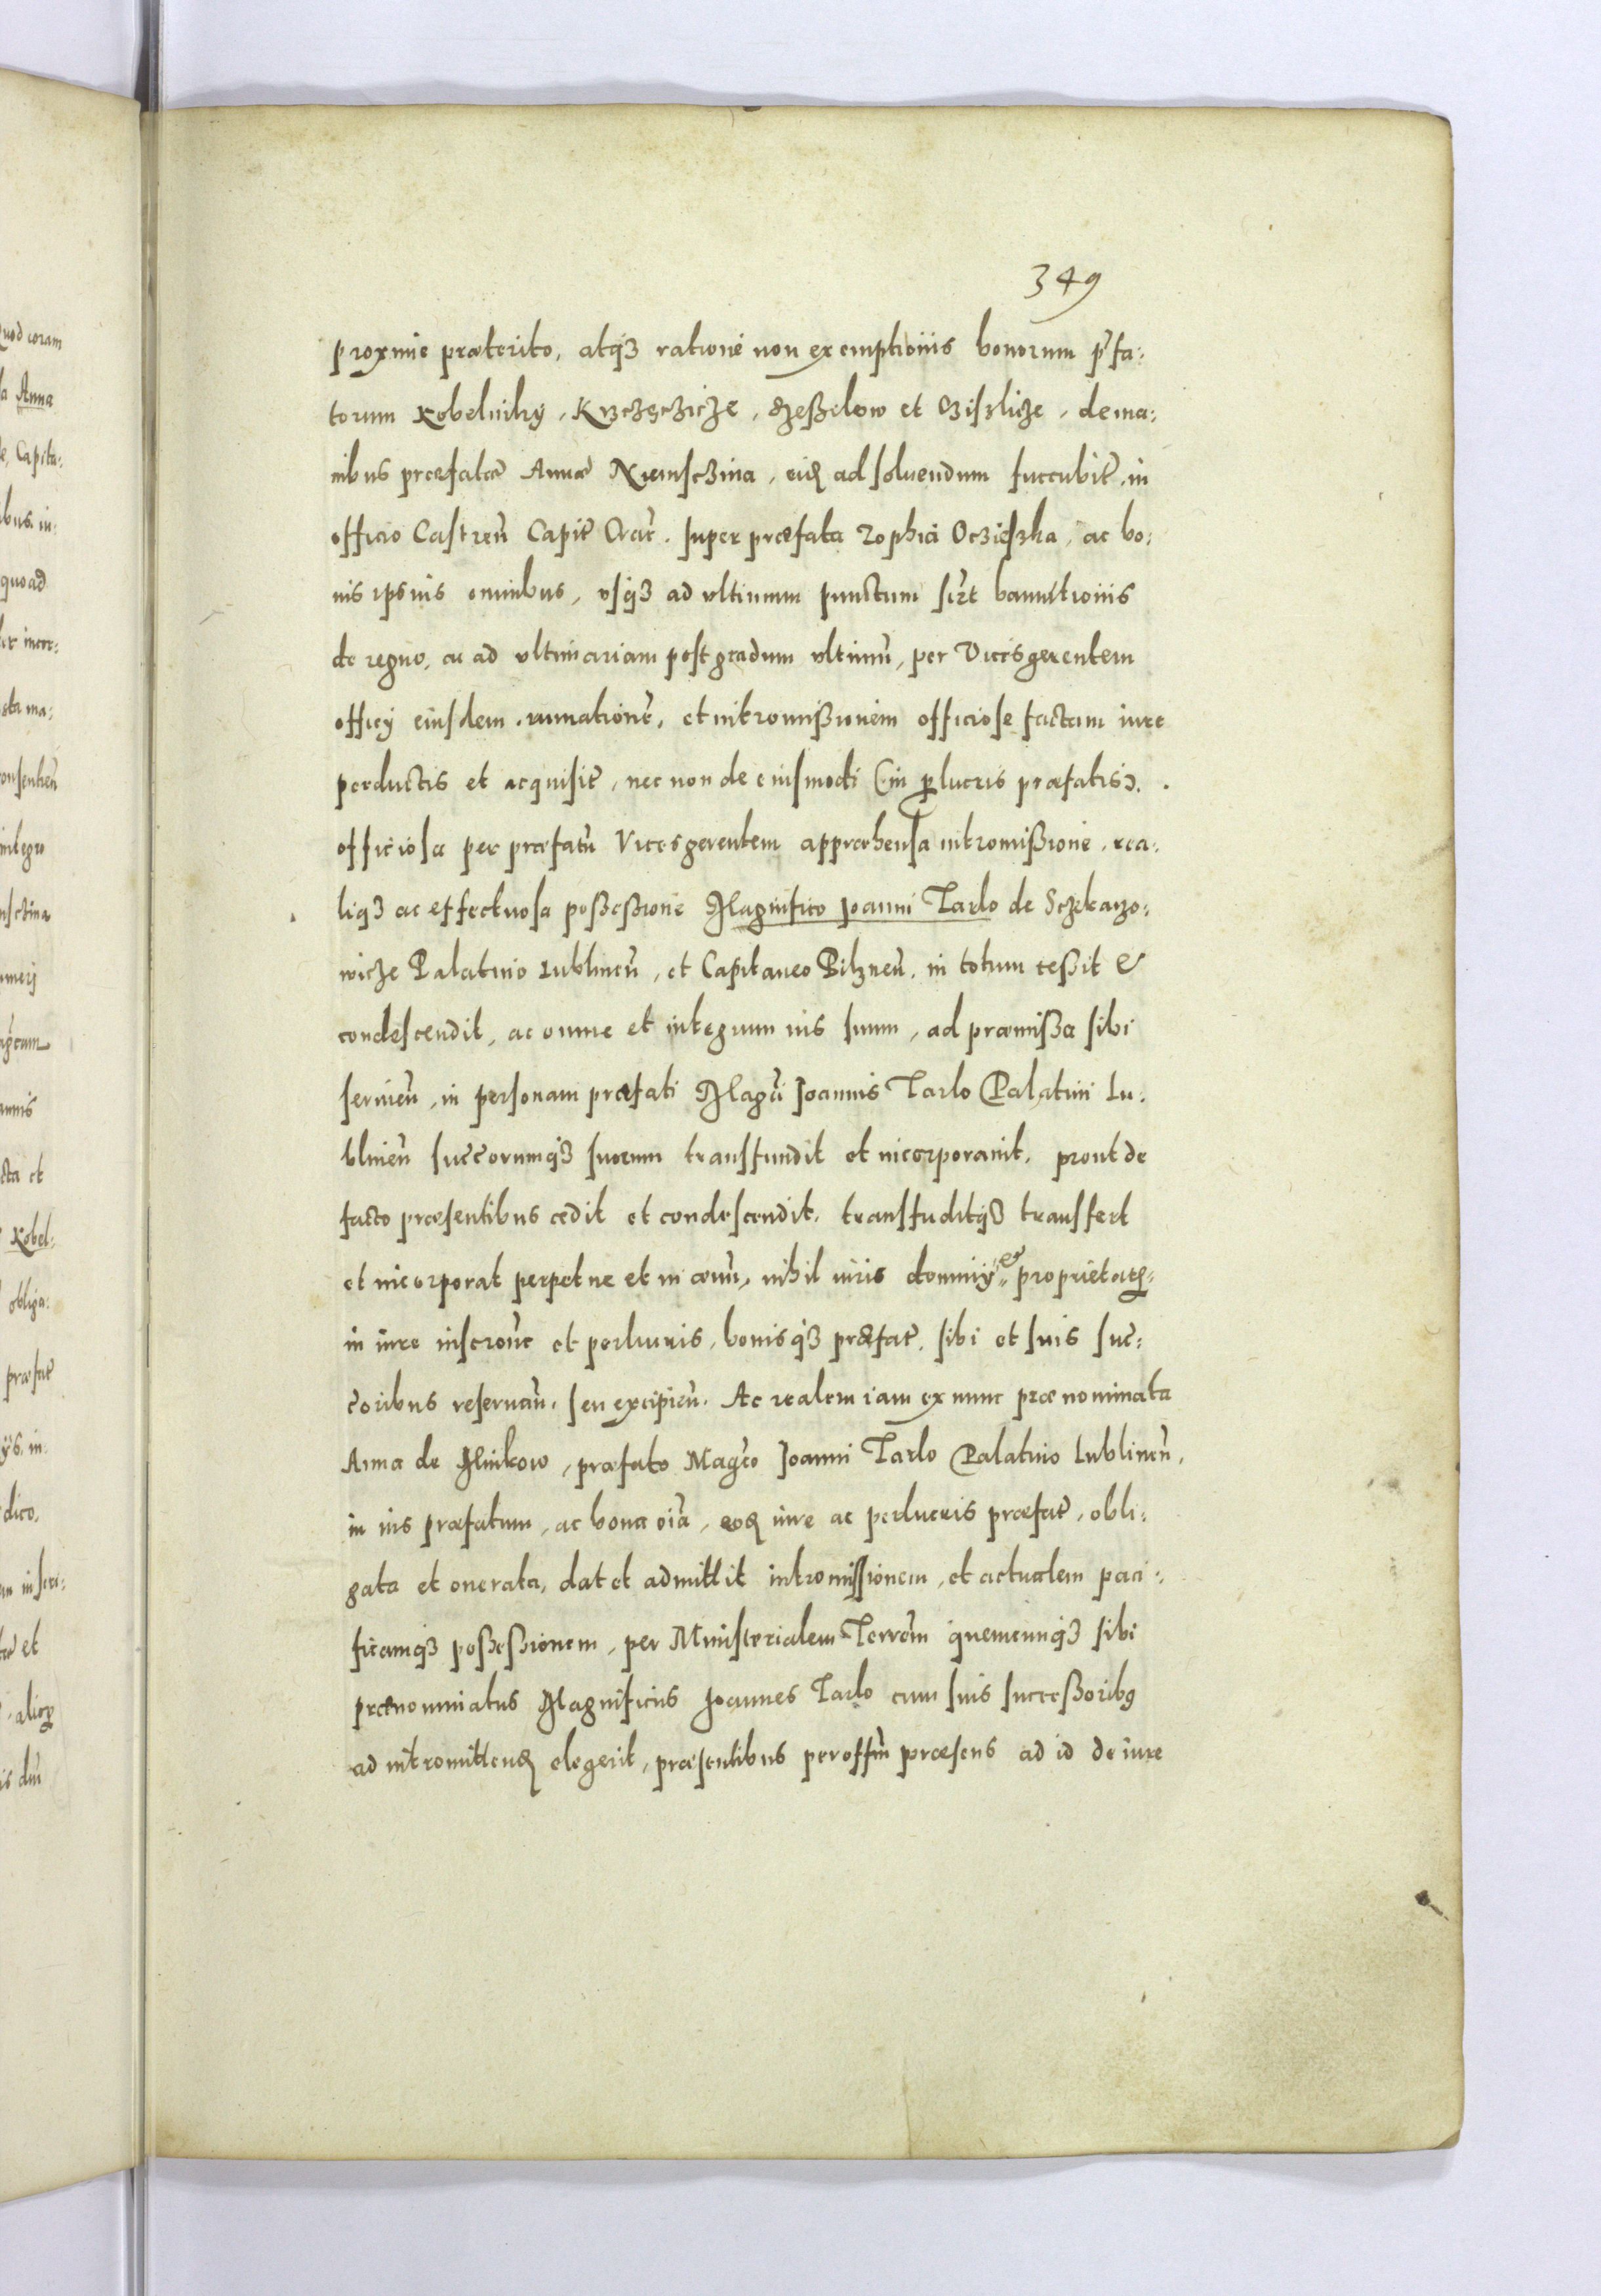 349
proxime præterito, atq3 ratione non exemptionis bonorum p̃fa:
torum Kobelniky, Krzczęczicze, et , de ma:
nibus præfatæ Annæ Niemsczina, ad soluendum succubit̃, in
officio Castreñ Capit̃ Crac̃. super præfata Zophia Oczieszka, ac bo:
nis ipsius omnibus, vsq3 ad vltimum punctum bannitionis
de regno, ac ad vltimariam post gradum vltimũ, per Vicesgerentem
officÿ eiusdem rumationẽ, et intromißionem officiose factam iure
perductis et acquisit̃, nec non de eiusmodi (in ꝑlucris præfatis).
officiosa per præfatũ Vicesgerentem appræhensa intromißione, rea:
liq3 ac effectuosa poßeßione Magnifico Joanni Tarlo de Sczekarzo:
wicze Palatino Lublineñ, et Capitaneo Pilzneñ, in totum ceßit &
condescendit, ac omne et integrum ius suum, ad præmißa sibi
seruieñ, in personam præfati Magc̃i Joannis Tarlo Palatini Lu:
blineñ succ̃orumq3 suorum transfundit et incorporauit, prout de
facto præsentibus cedit et condescendit, transfuditq3 transfert
et incorporat perpetue et in æuũ, nihil iuris dominÿ & proprietatꝭ
in iure inscr̃one et perlucris, bonisq3 præfat̃, sibi et suis suc̃:
c̃oribus reseruañ, seu excipieñ. Ac realem iam ex nunc prænominata
Anna de Minkow, præfato Magc̃o Joanni Tarlo Palatino Lublineñ,
in ius præfatum, ac bona oĩa, eoꝝ iure ac perlucris præfat̃, obli:
gata et onerata, dat et admittit intromissionem, et actualem paci:
ficamq3 poßeßionem, per Ministerialem Terreñ quemcunq3 sibi
prænominatus Magnificus Joannes Tarlo cum suis succeßoribꝯ
ad intromittenꝝ elegerit, præsentibus per offm̃ præsens ad id de iure